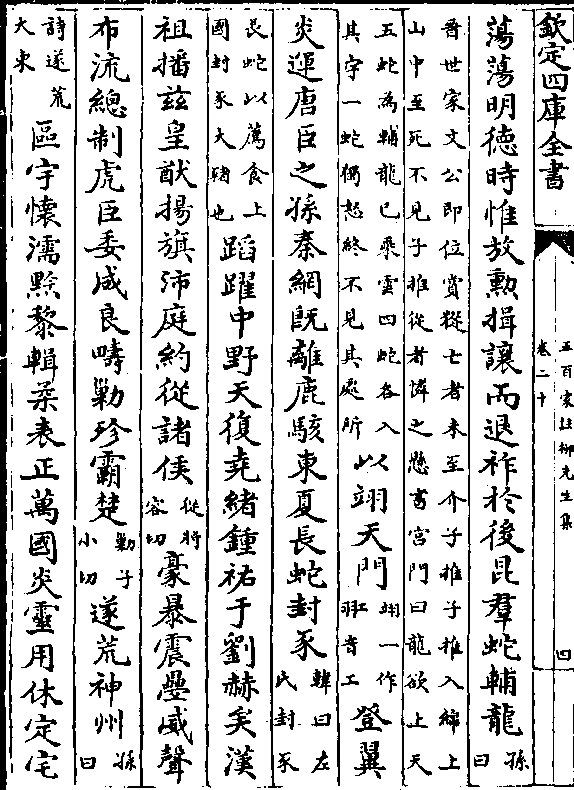 欽定四庫全書
五百家註柳先生集
卷二十
四
蕩蕩明德時惟放勲揖讓而退祚於後昆羣蛇輔龍孫曰
晉世家文公即位賞從亡者未至介子推子推入綿上
山中至死不見子推從者憐之懸書宫門曰龍欲上天
五蛇為輔龍已乘雲四蛇各入其宇一蛇獨怨終不見其處所以翊天門翊一作羾羾音工登翼
炎運唐臣之孫秦網既離鹿駭東夏長蛇封豕韓曰左氏封豕
長蛇以薦食上國封豕大豬也蹈躍中野天復堯緒鍾祐于劉赫矣漢
祖播兹皇猷揚旗沛庭約從諸侯從將容切豪暴震疊威聲
布流總制虎臣委成良疇勦殄霸楚勦子小切遂荒神州孫曰
詩遂荒大東區宇懷濡黔黎輯柔表正萬國炎靈用休定宅